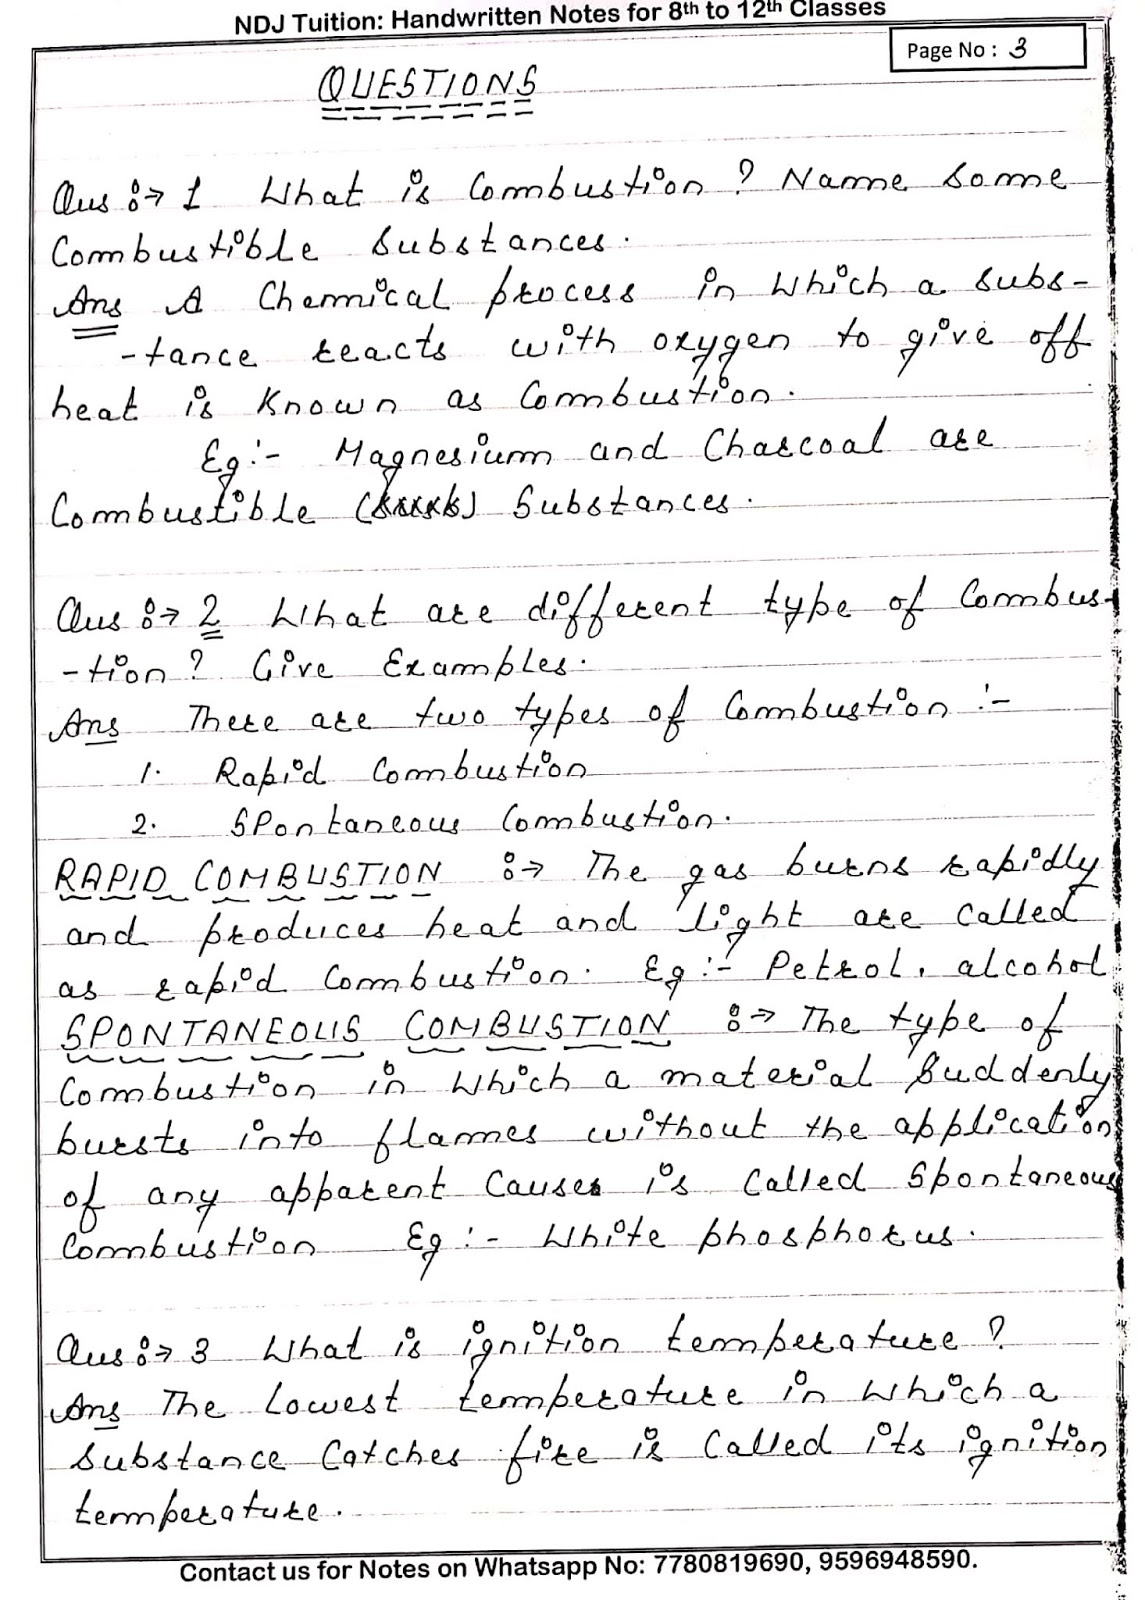 NDJ Tuition: Handwritten Notes for 8th to 12th Classes
Page No : 3
QUESTIONS
Qus :→ 1 What is Combustion ? Name some
Combustible substances.
Ans A Chemical process in which a subs-
-tance reacts with oxygen to give off
heat is known as Combustion.
Eg :- Magnesium and Charcoal are
Combustible Substances.
Qus :→ 2 What are different type of Combus-
-tion ? Give Examples.
Ans There are two types of Combustion :-
1. Rapid Combustion
2. Spontaneous Combustion.
RAPID COMBUSTION :→ The gas burns rapidly
and produces heat and light are called
as rapid Combustion. Eg :- Petrol, alcohol
SPONTANEOUS COMBUSTION :→ The type of
Combustion in which a material Suddenly
bursts into flames without the application
of any apparent Causes is Called Spontaneous
Combustion Eg :- White phosphorus.
Qus :→ 3 What is ignition temperature ?
Ans The Lowest temperature in which a
Substance Catches fire is Called its ignition
temperature.
Contact us for Notes on Whatsapp No: 7780819690, 9596948590.